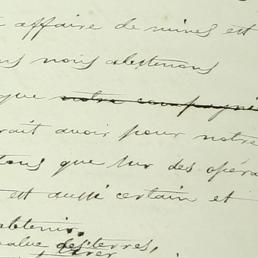 affaire de mines est
nous abstenons
que notre compagnie
rait avoir pour notre
tons que sur des opéra
est aussi certain et
abtenir.
value des terres,